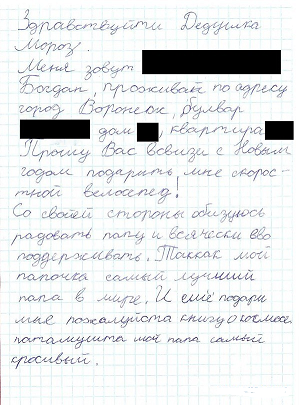 Здравствуйти Дедушка
Мороз.
Меня зовут
Богдан, проживаю по адресу
город Воронеж, булвар
дом , квартира
Прошу Вас всвизи с Новым
годом подарить, мне скорос-
тной велосипед!
Со своей стороны обизуюсь
радовать папу и всячески ево
поддерживать. Таккак мой
папочка самый лучший
папа в мире. И ещё подари
мне пожалуйста книгу о космосе.
патамушта мой папа самый
красивый.